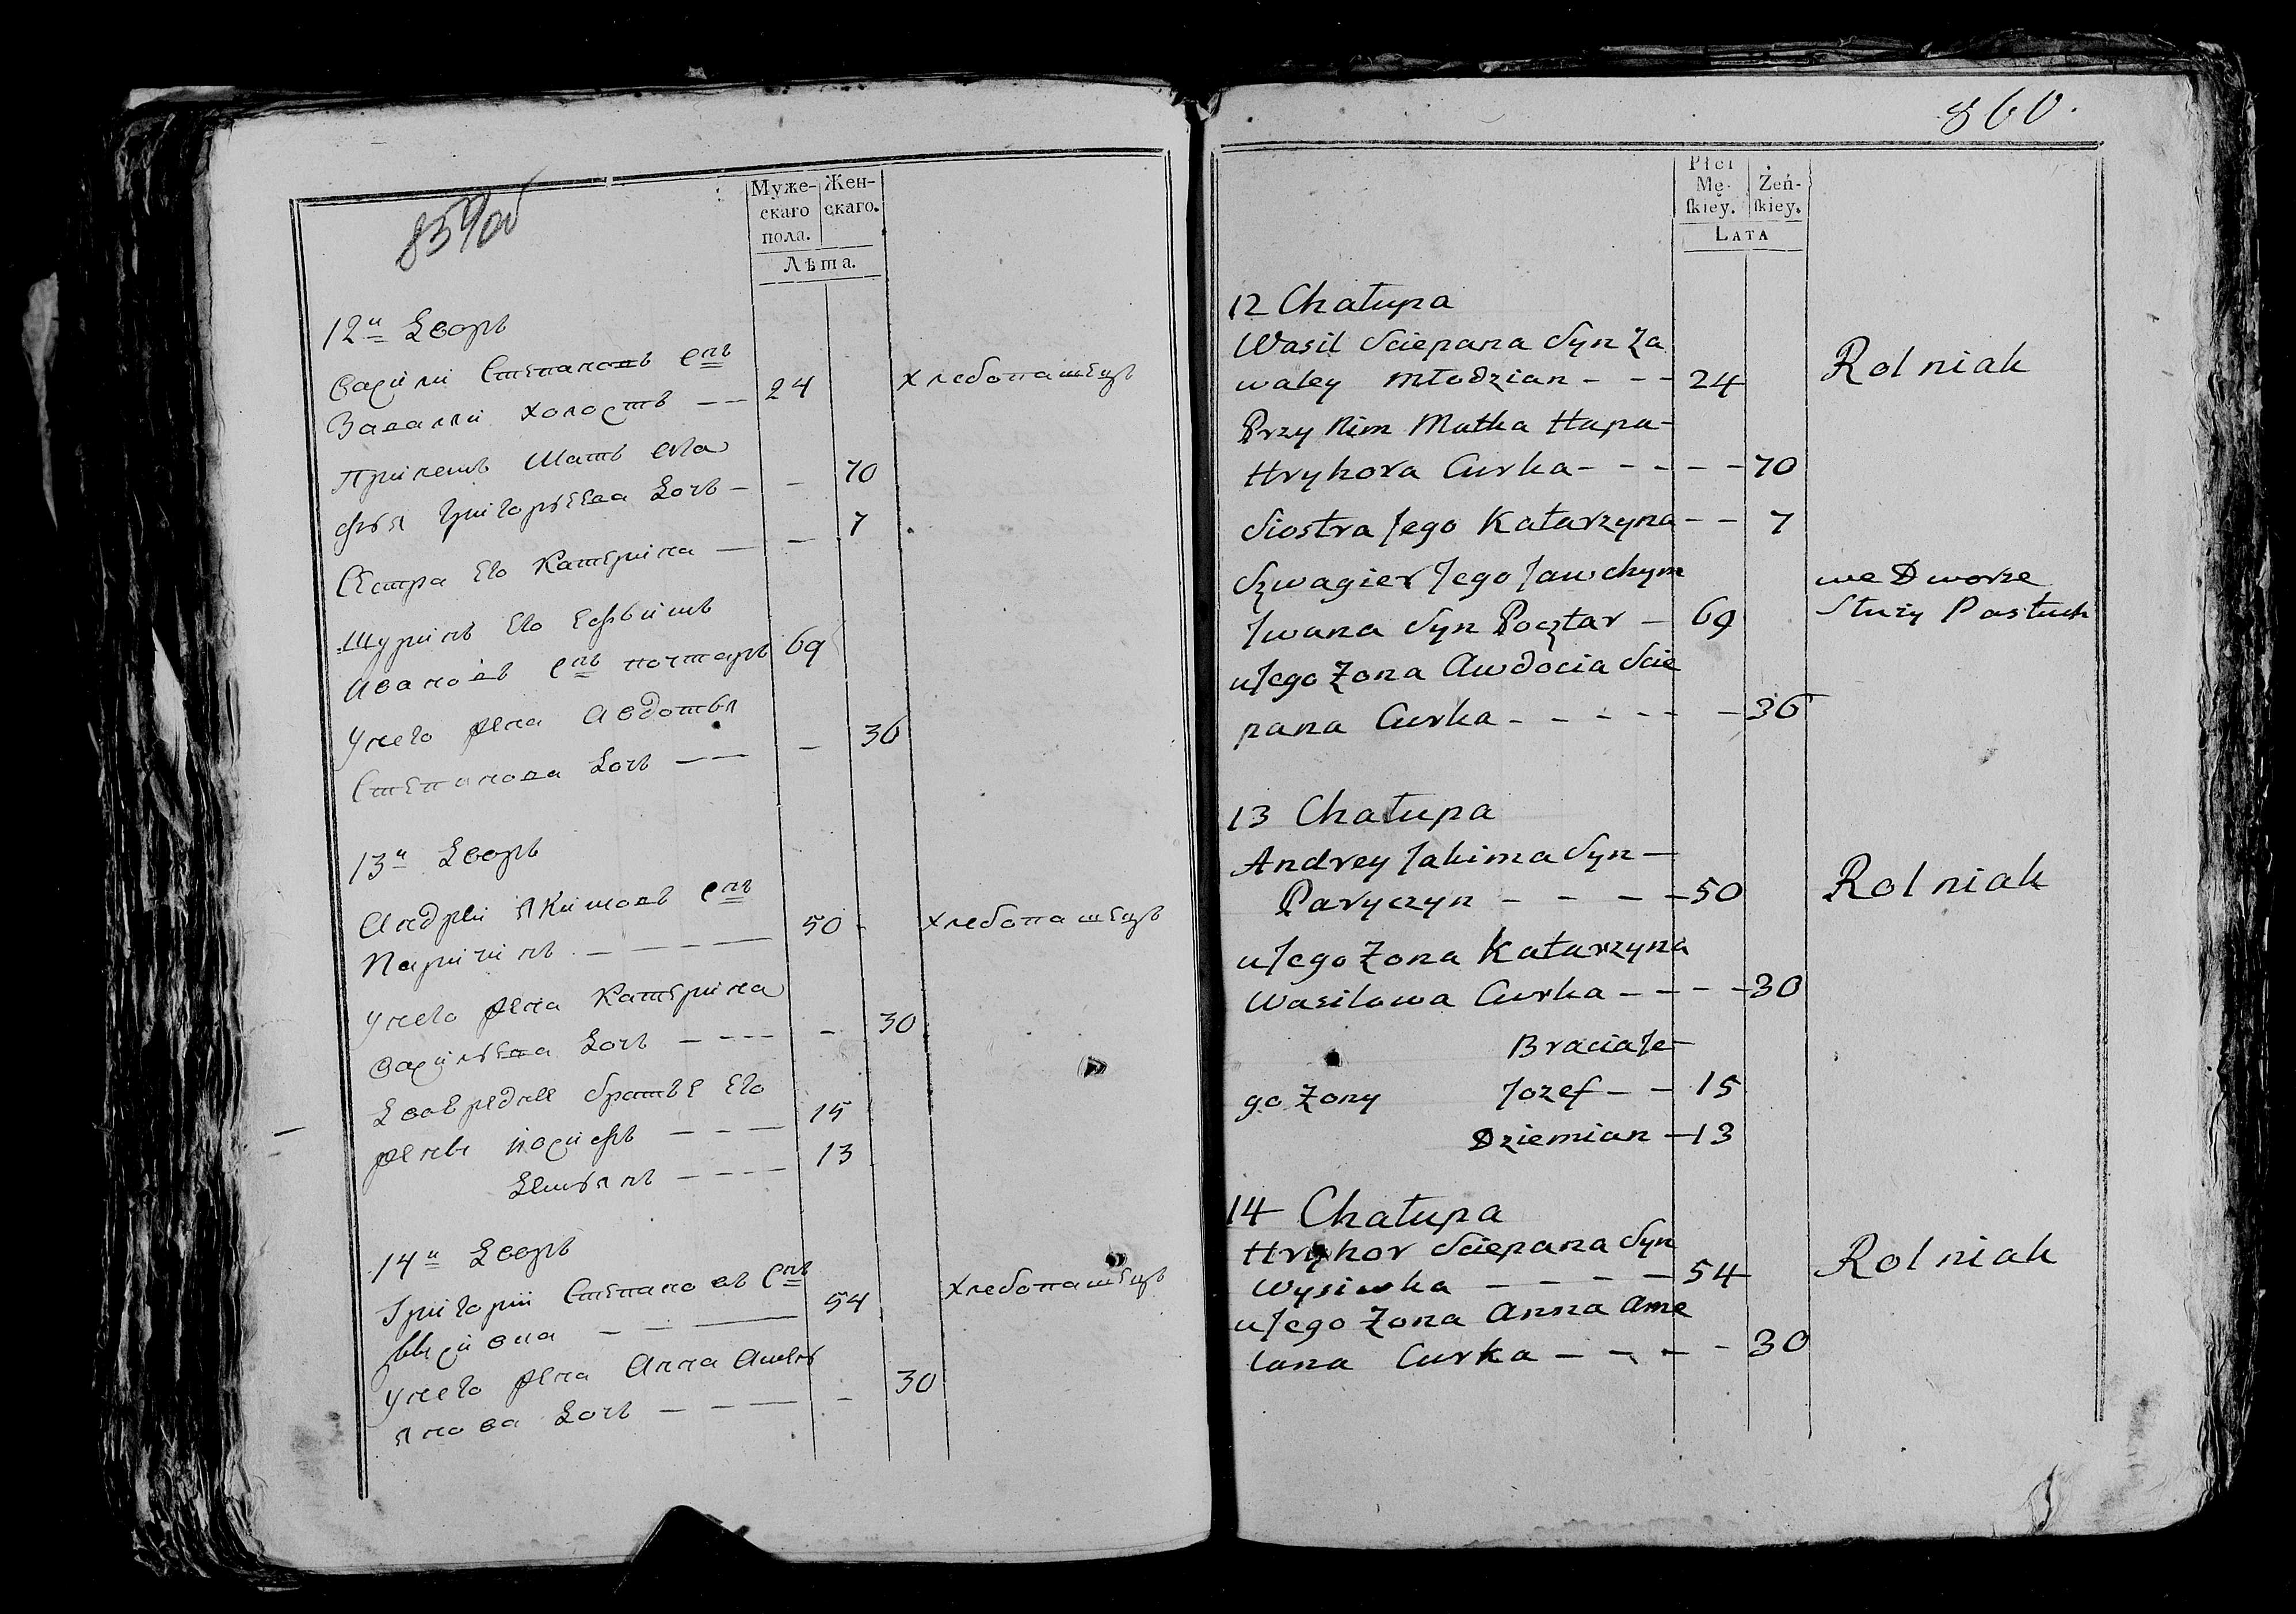 859 об
Муже-
скаго
пола.
Жен-
скаго.
Лѣта.
12й Дворъ
Василій Степановъ снъ
Завалій холостъ — — 24 хлебопашецъ
При немъ Мать Ага
фья Григорьева Дочь — — 70
Сестра Его Катерина — — 7
Шуринъ Его Ефимъ
Ивановъ снъ почтаръ 69
У него жена Авдотья
Степанова Дочь — — — 36
13й Дворъ
Андрей Якимовъ снъ
Паричинъ — — — 50 хлебопашецъ
У него жена Катерина
Васильева Дочь — — — — 30
Его
жены Иосифъ — — — 15
Демьянъ — — — 13
14й Дворъ
Григорий Степановъ снъ
Высивка — — — 54 хлебопашецъ
У него жена Анна Амель
янова Дочь — — — — 30
860.
Płci
Mę-
ſkiey.
Żeń-
ſkiey.
LATA
12 Chałupa
Wasil Sciepana Syn Za
waley młodzian - - - 24 Rolniak
Przy Nim Matka Hapa-
Hryhora Curka - - - - - 70
Siostra Jego Katarzyna - - 7
Szwagier Jego Jawchym we Dworze
Jwana Syn Pocztar - 69 Służy Pastuch
u Jego Zona Awdocia Scie
pana Curka - - - - - - 36
13 Chałupa
Andrey Jakima Syn —
Paryczyn - - - - 50 Rolniak
u Jego Zona Katarzyna
Wasilowa Curka - - - - 30
Bracia Je-
go Zony Jozef - - 15
Dziemian - 13
14 Chałupa
Hryhor Sciepana Syn
Wysiwka - - - - 54 Rolniak
u Jego Zona Anna Ame
lana Curka - - - - 30